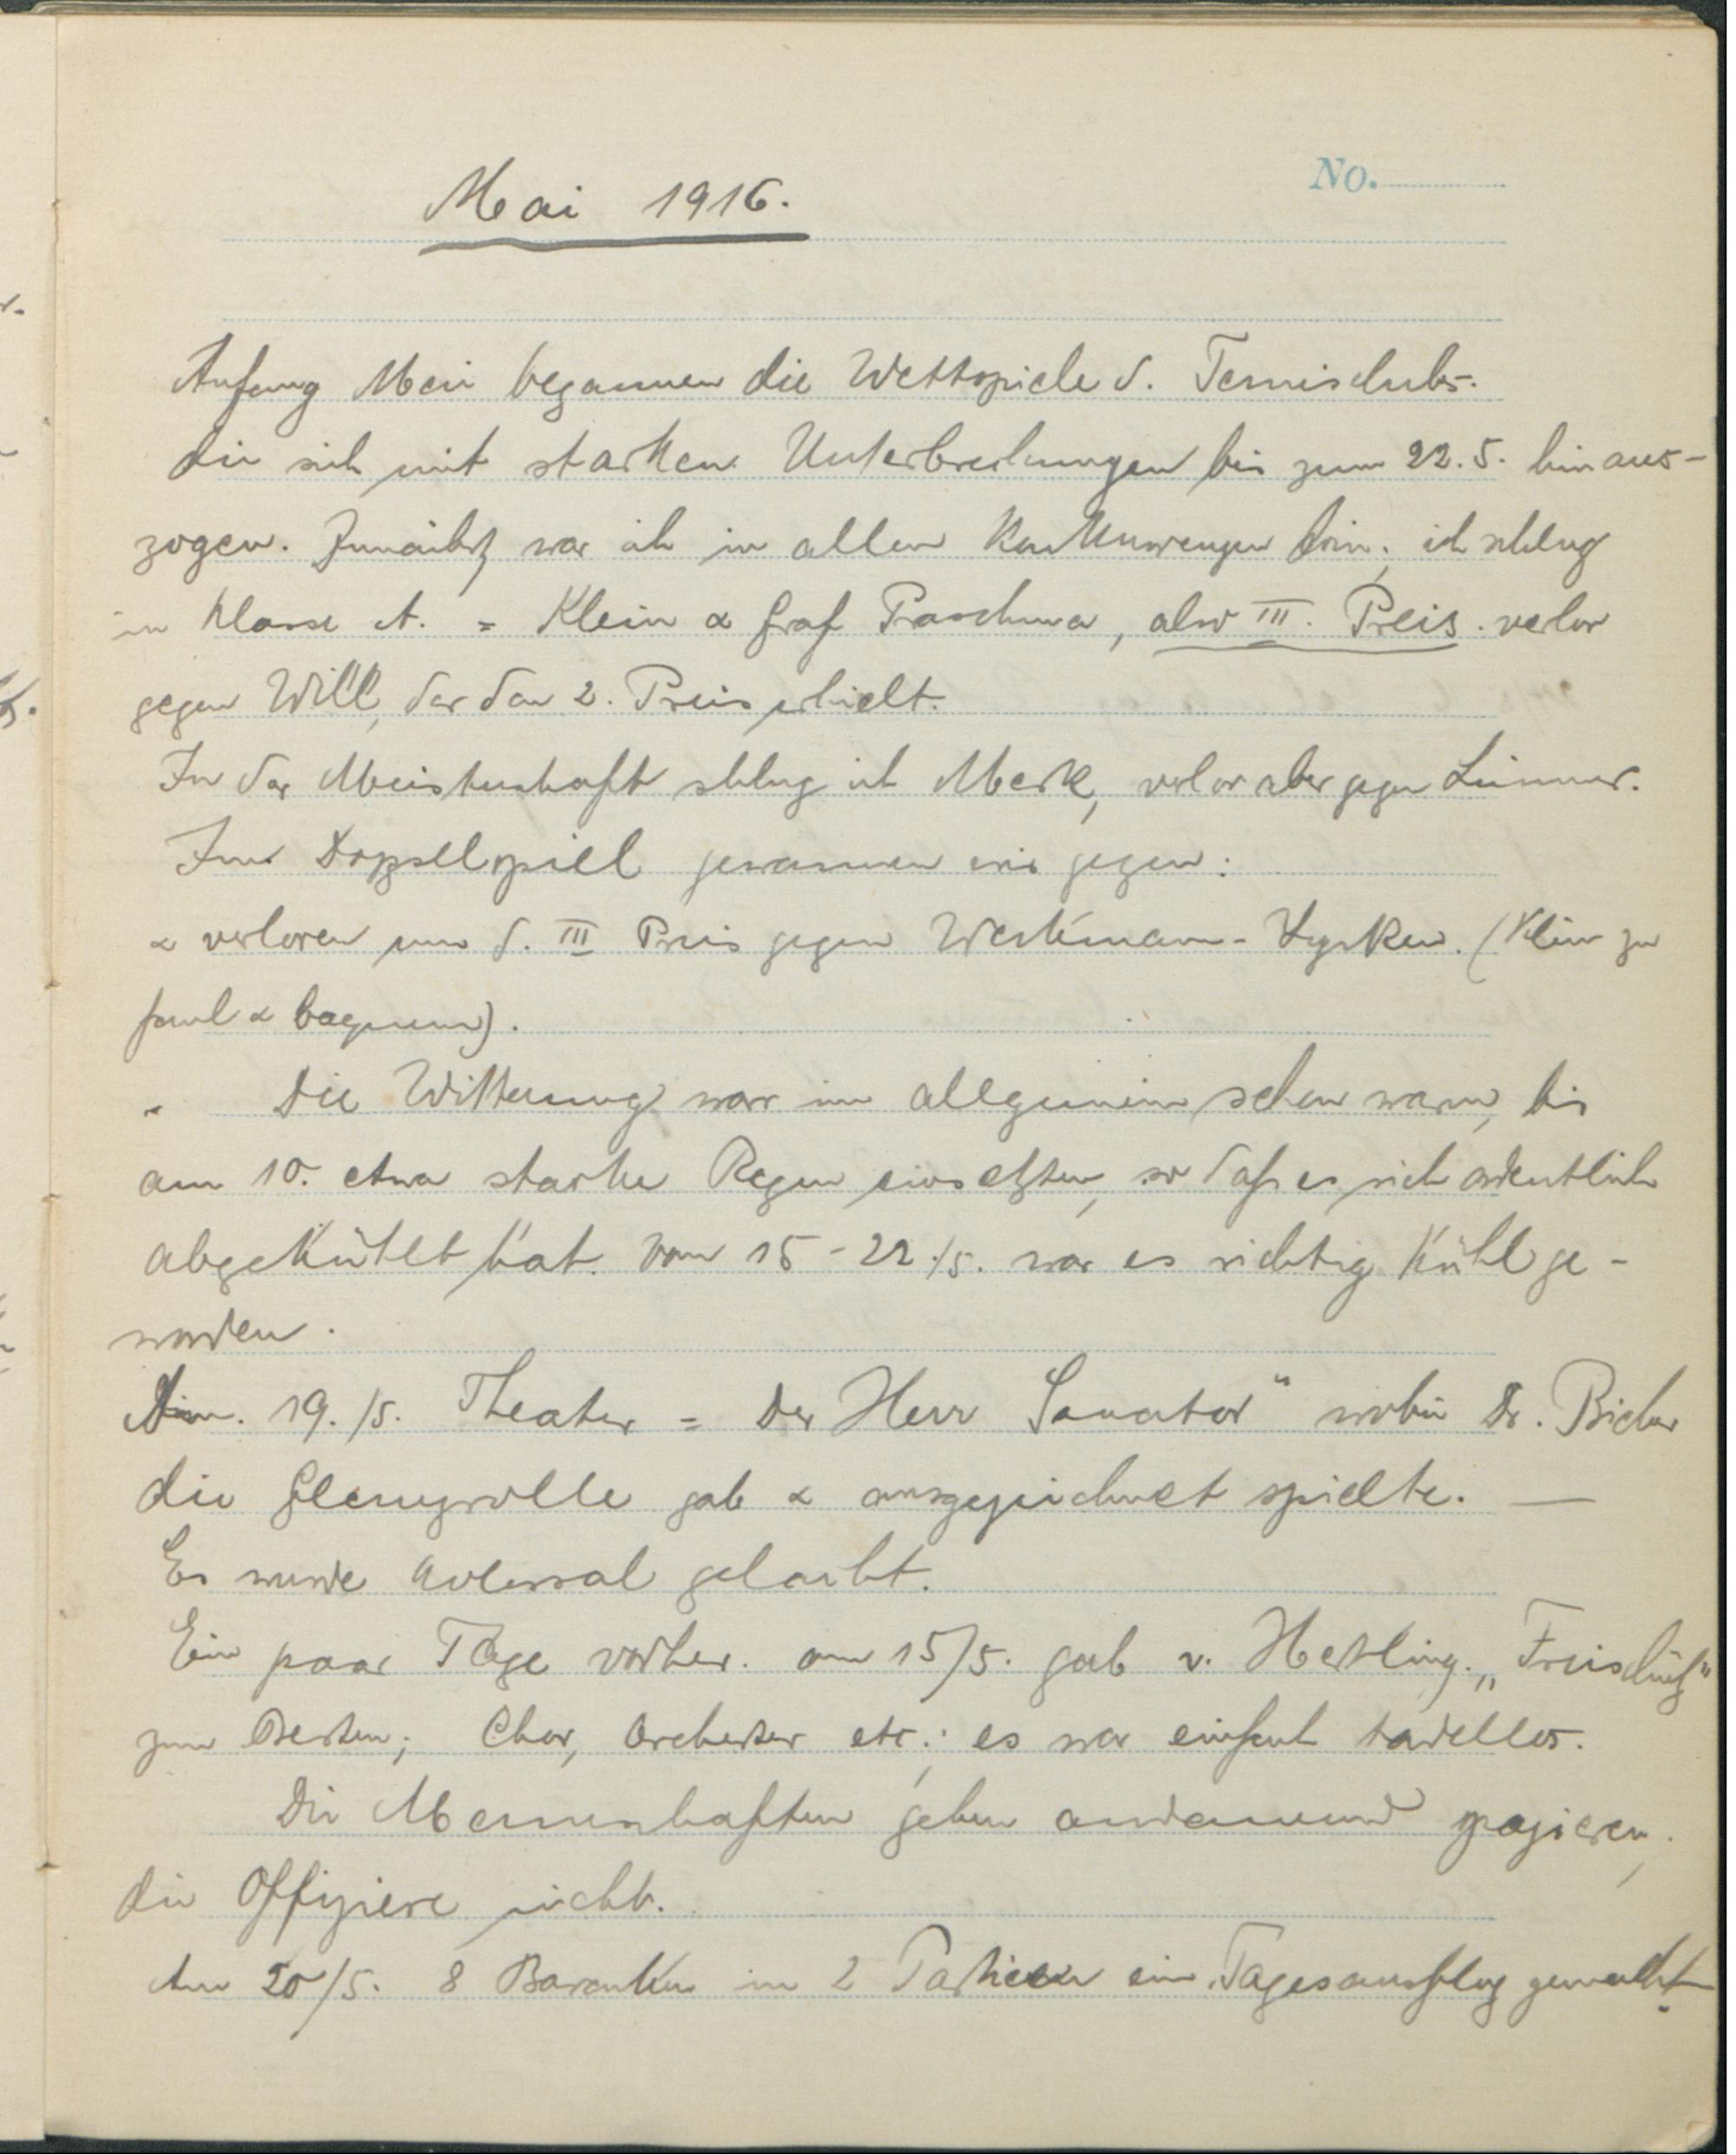 No.
Mai 1916.
Anfang Mai begannen die Wettspiele d. Tennisclubs.
die sich mit starken Unterbrechungen bis zum 22.5. hinaus-
zogen. Zunächst war ich in allen Konkurrenzen drin; ich schlug
in Klasse A. = Klein & Graf Praschma, also III. Preis. verlor
gegen Will, der den 2. Preis erhielt.
In der Meisterschaft schlug ich Merk, verlor aber gegen
Im Doppelspiel gewannen wir gegen:
& verloren um d. III Preis gegen (Klein zu
faul & bequem).
Die Witterung war im allgemeinen schon warm, bis
am 10. etwa starke Regen einsetzten, so daß es sich ordentlich
abgekühlt hat. Vom 15-22./5. war es richtig kühl ge-
worden.
19./5. Theater = Der Herr Senator" wobei Dr.
die Glanzrolle gab & ausgezeichnet spielte. —
Es wurde kolossal gelacht.
Ein paar Tage vorher. am 15/5. gab v. Hertling. „Freischütz"
zum Besten; Chor, Orchester etc.; es war einfach tadellos.
Die Mannschaften gehen andauernd spazieren,
die Offiziere nicht.
Am 20/5. 8 Baracken in 2 Partieen ein Tagesausflug gemacht